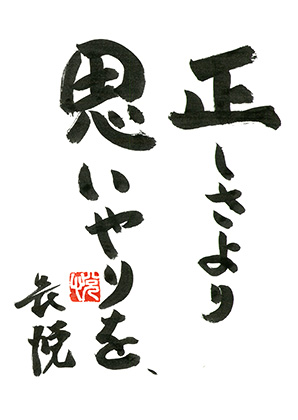 正しさより
思いやりを、
長悦
悦